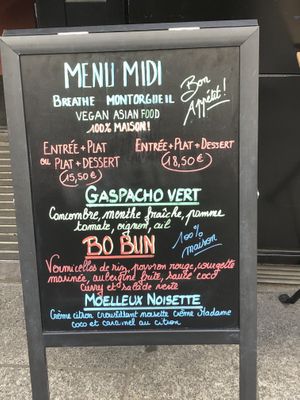 MENU MIDI
BREATHE MONTORGUEIL
VEGAN ASIAN FOOD
100% MAISON!
Bon
Appétit!
ENTRÉE+PLAT
OU PLAT+DESSERT
15,50€
ENTRÉE+PLAT+DESSERT
18,50€
GASPACHO VERT
Concombre, menthe fraîche, pomme
tomate, oignon, ail
BO BUN
100%
maison
Vermicelles de riz, poivron rouge, courgette
marinée, aubergine frite, sauce coco
curry et salade verte
MOELLEUX NOISETTE
Crème citron croustillant noisette crème Madame
coco et caramel au citron